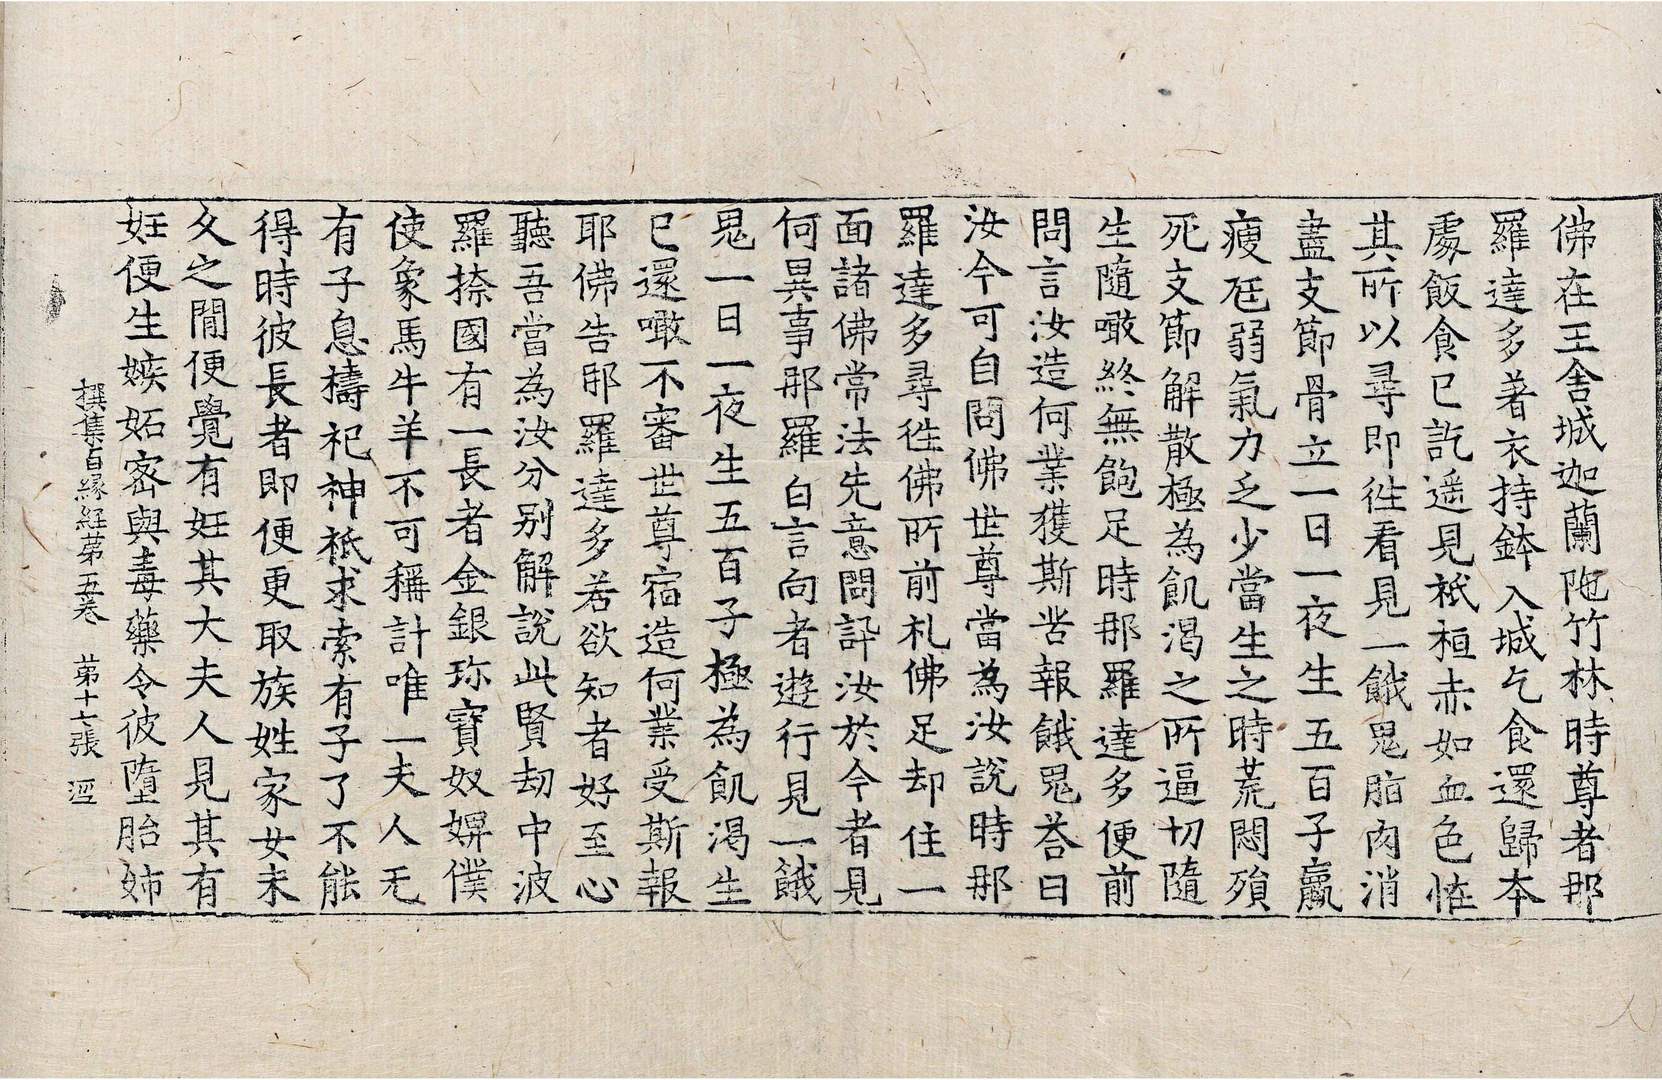 佛在王舍城迦蘭陁竹林時尊者那
羅達多著衣持鉢入城乞食還歸本
處飯食已訖遥見祇桓赤如血色恠
其所以尋即徃看見一餓鬼脂肉消
盡支節骨立一日一夜生五百子羸
瘦尫弱氣力乏少當生之時荒悶殞
死支節解散極為飢渴之所逼切隨
生隨噉終無飽足時那羅達多便前
問言汝造何業獲斯苦報餓鬼荅曰
汝今可自問佛世尊當為汝說時那
羅達多尋徃佛所前礼佛足却住一
面諸佛常法先意問訊汝於今者見
何異事那羅白言向者遊行見一餓
鬼一日一夜生五百子極為飢渴生
已還噉不審世尊宿造何業受斯報
耶佛告那羅達多若欲知者好至心
聽吾當為汝分别解說此賢劫中波
羅捺國有一長者金銀珎寶奴婢僕
使象馬牛羊不可稱計唯一夫人无
有子息禱祀神祇求索有子了不能
得時彼長者即便更取族姓家女未
久之閒便覺有妊其大夫人見其有
妊便生嫉妬宻與毒藥令彼墮胎姊
撰集百緣經苐五卷 苐十七張 𢀖